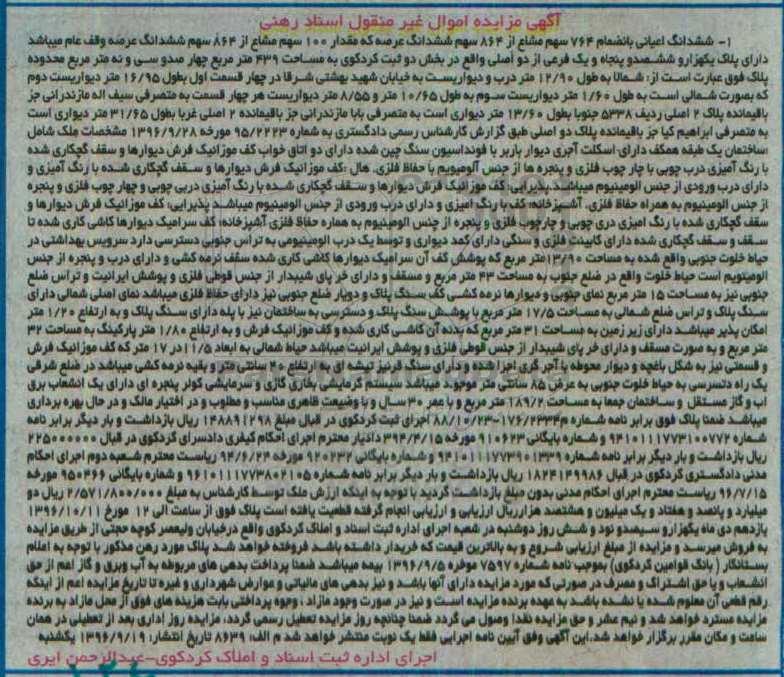 آگهی مزایده اموال غیر منقول اسناد رهنی
۱- ششدانگ اعیانی بانضمام ۷۶۴ سهم مشاع از ۸۶۴ سهم ششدانگ عرصه که مقدار ۱۰۰ سهم مشاع از ۸۶۴ سهم ششدانگ عرصه وقف عام میباشد
دارای پلاک یکهزارو ششصدو پنجاه و یک فرعی از دو اصلی واقع در بخش دو ثبت کردکوی به مساحت ۴۳۹ متر مربع چهار صدو سی و نه متر مربع محدوده
پلاک فوق عبارت است از: شمالا به طول ۱۲/۹۰ متر درب و دیواریست به خیابان شهید بهشتی شرقا در چهار قسمت اول بطول ۱۶/۹۵ متر دیواریست دوم
که بصورت شمالی است به طول ۱/۶۰ متر دیواریست سوم به طول ۱۰/۶۵ متر و ۸/۵۵ متر دیواریست هر چهار قسمت به متصرفی سیف اله مازندرانی جز
باقیمانده پلاک ۲ اصلی ردیف ۵۳۳۸ جنوبا بطول ۱۳/۶۰ متر دیواری است به متصرفی بابا مازندرانی جز باقیمانده ۲ اصلی غربا بطول ۳۱/۶۵ متر دیواری است
به متصرفی ابراهیم کیا جز باقیمانده پلاک دو اصلی طبق گزارش کارشناس رسمی دادگستری به شماره ۹۵/۲۲۲۳ مورخه ۱۳۹۶/۹/۲۸ مشخصات ملک شامل
:ساختمان یک طبقه همکف دارای اسکلت آجری دیوار باربر با فونداسیون سنگ چین شده دارای دو اتاق خواب کف موزائیک فرش دیوارها و سقف گچکاری شده
با رنگ آمیزی درب چوبی با چار چوب فلزی و پنجره ها از جنس آلومیویم با حفاظ فلزی. هال :کف موزائیک فرش دیوارها و سقف گچکاری شده با رنگ آمیزی و
دارای درب ورودی از جنس الومینیوم میباشد پذیرایی: کف موزائیک فرش دیوارها و سقف گچکاری شده با رنگ آمیزی دربی چوبی و چهار چوب فلزی و پنجره
از جنس الومینیوم به همراه حفاظ فلزی. آشپزخانه: کف با رنگ امیزی و دارای درب ورودی از جنس الومینیوم میباشد پذیرایی: کف موزائیک فرش دیوارها و
سقف گچکاری شده با رنگ امیزی دری چوبی و چارچوب فلزی و پنجره از جنس الومینیوم به هماره حفاظ فلزی آشپزخانه: کف سرامیک دیوارها کاشی کاری شده تا
سقف و سقف گچکاری شده دارای کابینت فلزی و سنگی دارای کمد دیواری و توسط یک درب الومینیومی به تراس جنوبی دسترسی دارد سرویس بهداشتی در
حیاط خلوت جنوبی واقع شده به مساحت ۱۳/۹۰متر مربع که پوشش کف آن سرامیک دیوارها کاشی کاری شده سقف نرمه کشی و دارای درب و پنجره از جنس
الومینیویم است حیاط خلوت واقع در ضلع جنوب به مساحت ۴۳ متر مربع و مسقف و دارای خر پای شیبدار از جنس قوطی فلزی و پوشش ایرانیت و تراس ضلع
جنوبی نیز به مساحت ۱۵ متر مربع نمای جنوبی و دیوارها نرمه کشی کف سنگ پلاک و دوبار ضلع جنوبی نیز دارای حفاظ فلزی میباشد نمای اصلی شمالی دارای
سنگ پلاک و تراس ضلع شمالی به مساحت ۱۷/۵ متر مربع با پوشش سنگ پلاک و دسترسی به ساختمان نیز با پله دارای سنگ پلاک و به ارتفاع ۱/۲۰ متر
امکان پذیر میباشد دارای زیر زمین به مساحت ۳۱ متر مربع که بدنه آن کاشی کاری شده و کف موزائیک فرش و به ارتفاع ۱/۸۰ متر پارکینگ به مساحت ۳۲
متر مربع و به صورت مسقف و دارای خر پای شیبدار از جنس قوطی فلزی و پوشش ایرانیت میباشد حیاط شمالی به ابعاد ۱۱/۵ در ۱۷ متر که کف موزائیک فرش
و قسمتی نیز به شکل باغچه و دیوار محوطه با آجر گری اجرا شده و دارای سنگ قرنیز تیشه ای به ارتفاع ۴۰ سانتی متر و بقیه نرمه کشی میباشد در ضلع شرقی
یک راه دتسرسی به حیاط خلوت جنوبی به عرض ۸۵ سانتی متر موجود میباشد سیستم گرمایشی بخاری گازی و سرمایشی کولر پنجره ای دارای یک انشعاب برق
اب و گاز مستقل و ساختمان جمعا به مساحت ۱۸۹/۲ متر مربع و با عمر ۳۰ سال و با وضیعت ظاهری مناسب و مطلوب و در اختیار مالک و در حال بهره برداری
میباشد ضمنا پلاک فوق برابر نامه شماره ۱۷۶/۲۳۳۴م-۸۸/۱۰/۲۳ اجرای ثبت کردکوی در قبال مبلغ ۱۴۸۸۹۱۲۹۸ ریال بازداشت و بار دیگر برابر نامه
شماره ۹۴۱۰۱۱۱۷۷۳۱۰۰۷۷۲ و شماره بایگانی ۹۱۰۶۲۳ مورخه ۳۹۴/۴/۱۵ دادیار محترم اجرای احکام کیفری دادسرای کردکوی در قبال ۲۲۵۰۰۰۰۰۰
ریال بازداشت و بار دیگر برابر نامه شماره ۹۴۱۰۱۱۱۷۷۳۹۰۱۳۳۹ و شماره بایگانی ۹۲۰۲۳۲ مورخه ۹۴/۶/۲۴ ریاست محترم شعبه دوم اجرای احکام
مدنی دادگستری کردکوی در قبال ۱۸۲۴۱۴۹۹۸۶ ریال بازداشت و بار دیگر برابر نامه شماره ۹۶۱۰۱۱۱۷۷۳۸۰۲۱۰۵ و شماره بایگانی ۹۵۰۴۶۶ مورخه
۹۶/۷/۱۵ ریاست محترم اجرای احکام مدنی بدون مبلغ بازداشت گردید با توجه به اینکه ارزش ملک توسط کارشناس به مبلغ ۲/۵۷۱/۸۰۰/۰۰۰ ریال دو
میلیارد و پانصد و هفتاد و یک میلیون و هشتصد هزارریال ارزیابی و ارزیابی انجام گرفته قطعیت یافته است پلاک فوق از ساعت الی ۱۲ مورخ ۱۳۹۶/۱۰/۱۱
یازدهم دی ماه یکهزارو سیصدو نود و شش روز دوشنبه در شعبه اجرای اداره ثبت اسناد و املاک کردکوی واقع درخیابان ولیعصر کوچه حجتی از طریق مزایده
به فروش میرسد و مزایده از مبلغ ارزیابی شروع و به بالاترین قیمت که خریدار داشته باشد فروخته خواهد شد پلاک مورد رهن مذکور با توجه به اعلام
بستانکار ( بانگ قوامین کردکوی) بموجب نامه شماره ۷۵۹۷ موخره ۱۳۹۶/۹/۵ بیمه میباشد ضمنا پرداخت بدهی های مربوطه به آب وبری و گاز اعم از حق
انشعاب و یا حق اشتراک و مصرف در صورتی که مورد مزایده دارای آنها باشد و نیز بدهی های مالیاتی و عوارض شهرداری و غیره تا تاریخ مزایده اعم از اینکه
رقم قطعی آن معلوم شده یا نشده باشد به عهده برنده مزایده است و نیز در صورت وجود مازاد ، وجوه پرداختی بابت هزینه های فوق از محل مازاد به برنده
مزایده مسترد خواهد شد و نیم عشر و حق مزایده نقدا وصول می گردد ضمنا چنانچه روز مزایده تعطیل رسمی گردد، مزایده روز اداری بعد از تعطیلی در همان
ساعت و مکان مقرر برگزار خواهد شد.این آگهی وفق آیین نامه اجرایی فقط یک نوبت منتشر خواهد شد م الف: ۸۶۳۹ تاریخ انتشار: ۱۳۹۶/۹/۱۹ یکشنبه
اجرای اداره ثبت اسناد و املاک کردکوی-عبدالرحمن ایری